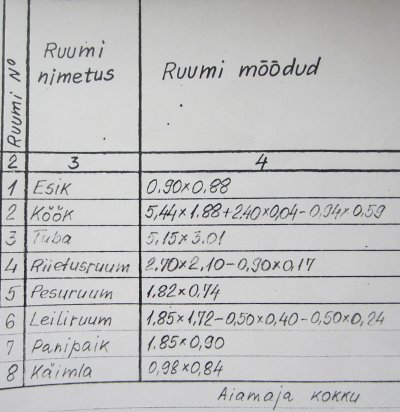 Ruumi Nº
Ruumi nimetus
Ruumi mõõdud
2 3 4
1 Esik 0,90×0,88
2 Köök 5,44×1.88+2.40×0,04-0,94×0,59
3 Tuba 5,15×3.01
4 Riietusruum 2.70×2.10-0,90×0,17
5 Pesuruum 1.82×0,74
6 Leiliruum 1,85×1,72-0,50×0,40-0,50×0,24
7 Panipaik 1.85×0,90
8 Käimla 0,98×0,84
Aiamaja kokku